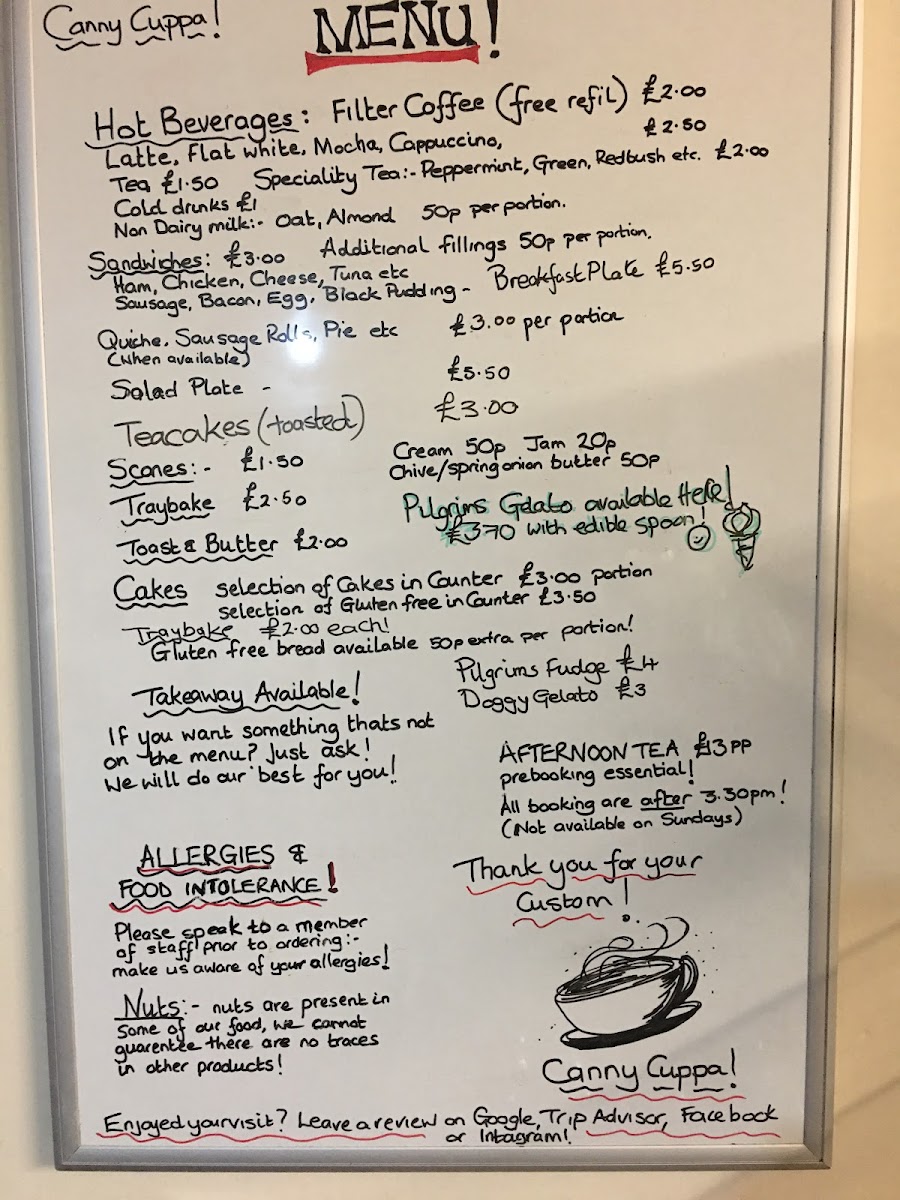 Canny Cuppa!
MENU!
Hot Beverages: Filter Coffee (free refil) £2.00
Latte, Flat white, Mocha, Cappuccino, £2.50
Tea £1.50 Speciality Tea:- Peppermint, Green, Redbush etc. £2.00
Cold drunks £1
Non Dairy milk:- Oat, Almond 50p per portion.
Sandwiches: £3.00 Additional fillings 50p per portion.
Ham, Chicken, Cheese, Tuna etc
Sausage, Bacon, Egg, Black Pudding - Breakfast Plate £5.50
Quiche, Sausage Rolls, Pie etc £3.00 per portion
(when available)
Salad Plate - £5.50
Teacakes (toasted) £3.00
Scones:- £1.50 Cream 50p Jam 20p
Chive/spring onion butter 50p
Traybake £2.50
Pilgrims Gelato available Here!
£3.70 with edible spoon!
Toast & Butter £2.00
Cakes selection of Cakes in Counter £3.00 portion
selection of Gluten free in Counter £3.50
Traybake £2.00 each!
Gluten free bread available 50p extra per portion!
Pilgrims Fudge £4
Doggy Gelato £3
Takeaway Available!
If you want something thats not
on the menu? Just ask!
We will do our best for you!
AFTERNOON TEA £13PP
prebooking essential!
All booking are after 3.30pm!
(Not available on Sundays)
ALLERGIES &
FOOD INTOLERANCE!
Please speak to a member
of staff prior to ordering:-
make us aware of your allergies!
Nuts:- nuts are present in
some of our food, we cannot
guarentee there are no traces
in other products!
Thank you for your
Custom!
Canny Cuppa!
Enjoyed your visit? Leave a review on Google, Trip Advisor, Facebook
or Intagram!